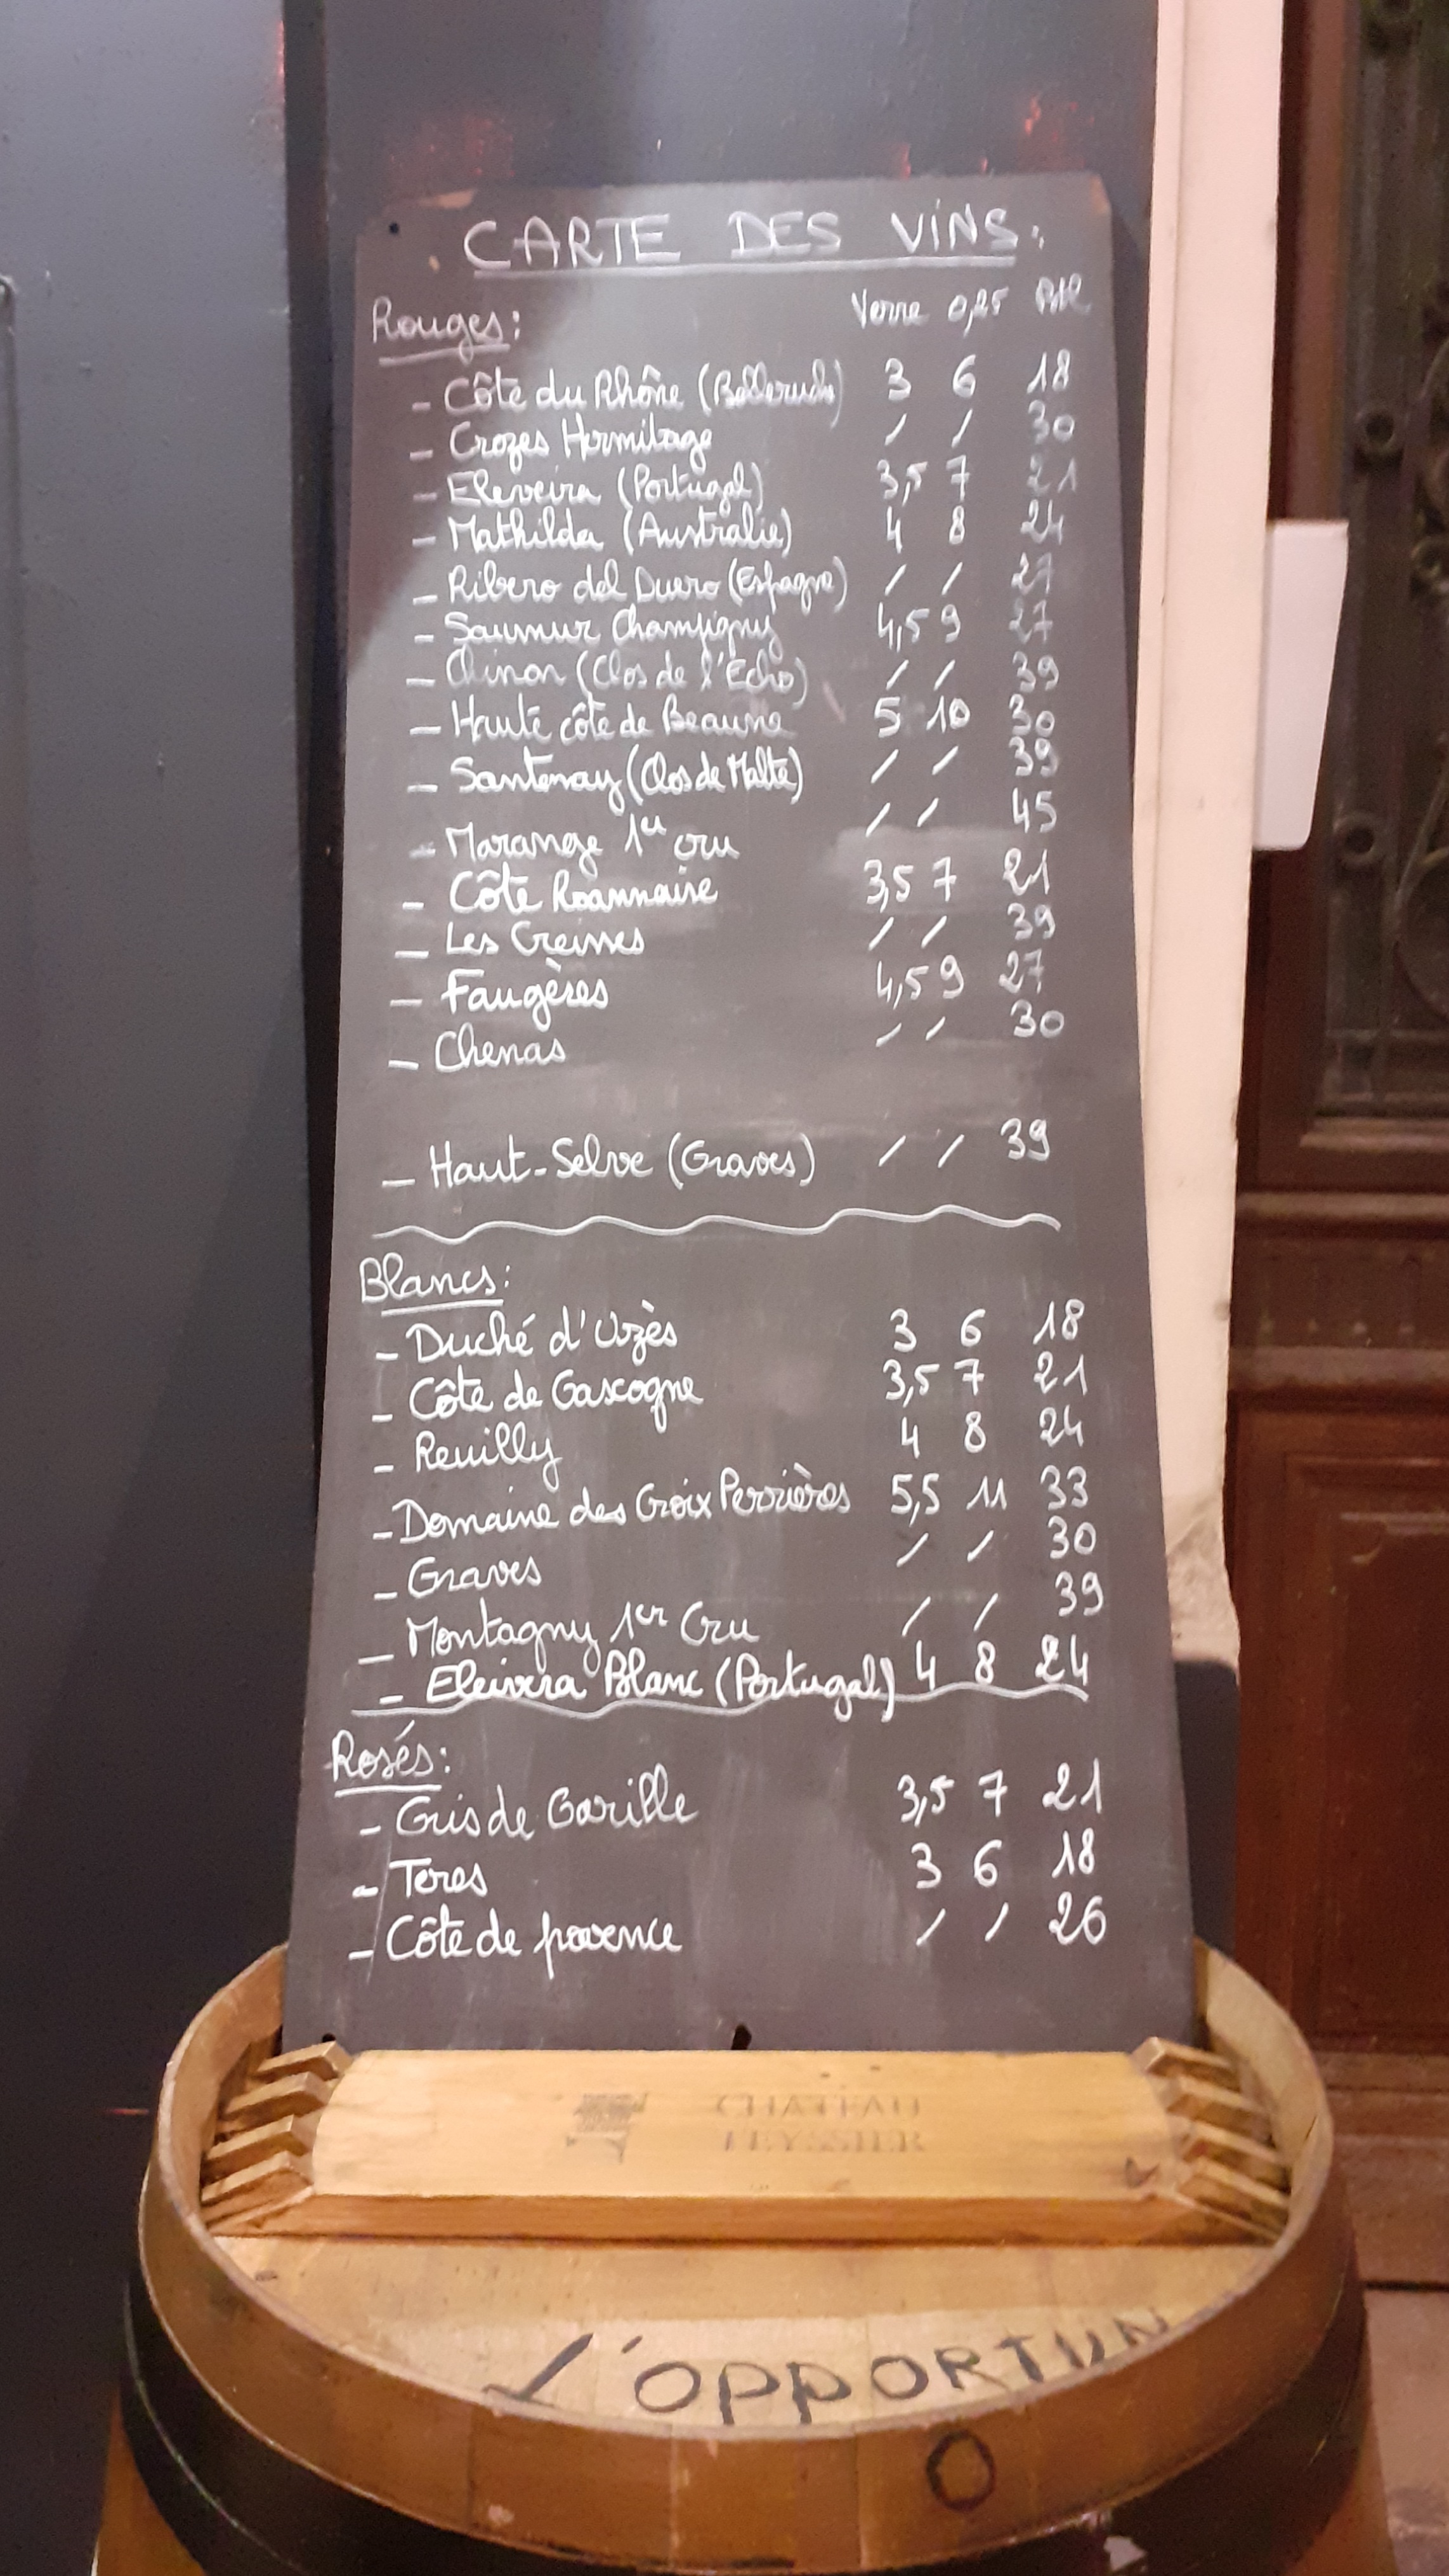 CARTE DES VINS:
Rouges: Verre 0,25 Btl
- Côte du Rhône (Belleruche) 3 6 18
- Crozes Hermitage / / 30
- Eleveira (Portugal) 3,5 7 21
- Mathilda (Australie) 4 8 24
- Ribero del Duero (Espagne) / / 27
- Saumur Champigny 4,5 9 27
- Chinon (Clos de l'Echo) / / 39
- Haute côte de Beaune 5 10 30
- Santenay (Clos de Malte) / / 39
- Marange 1er cru / / 45
- Côte Roannaise 3,5 7 21
- Les / / 39
- Faugères 4,5 9 27
- Chenas / / 30
- Haut-Selve (Graves) / / 39
Blancs:
- Duché d'Uzès 3 6 18
- Côte de Gascogne 3,5 7 21
- Reuilly 4 8 24
- Domaine des Croix Perrières 5,5 11 33
- Graves / / 30
- Montagny 1er Cru / / 39
- Eleivera Blanc (Portugal) 4 8 24
Rosés:
- Gris de Garille 3,5 7 21
- Teres 3 6 18
- Côte de provence / / 26
CHATEAU
TEYSSIER
L'OPPORTUN